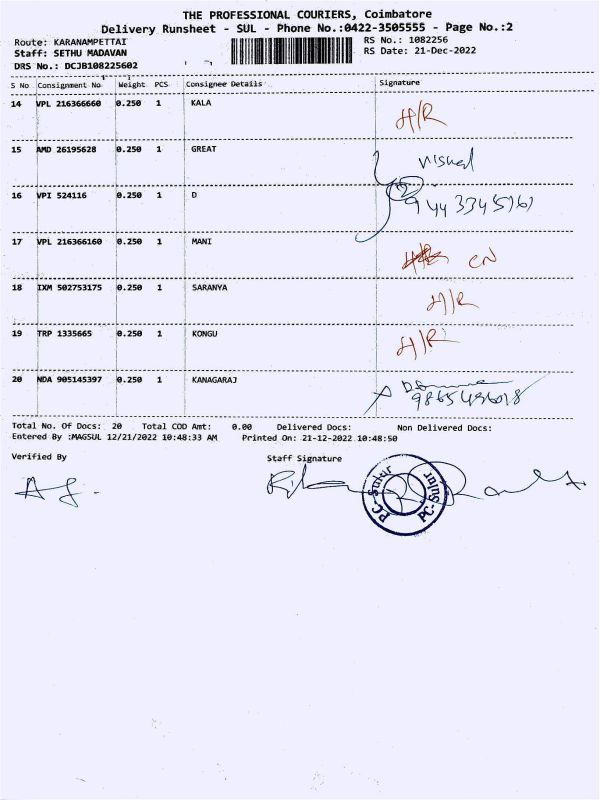 THE PROFESSIONAL COURIERS, Coimbatore
Delivery Runsheet - SUL - Phone No.:0422-3505555 - Page No.:2
Route: KARANAMPETTAI
RS No.: 1082256
Staff: SETHU MADAVAN
RS Date: 21-Dec-2022
DRS No.: DCJB108225602
S No Consignment No Weight PCS Consignee Details Signature
14 VPL 216366660 0.250 1 KALA H/R
15 AMD 26195628 0.250 1 GREAT
16 VPI 524116 0.250 1 D
17 VPL 216366160 0.250 1 MANI CN
18 IXM 502753175 0.250 1 SARANYA H/R
19 TRP 1335665 0.250 1 KONGU H/R
20 NDA 905145397 0.250 1 KANAGARAJ
Total No. Of Docs: 20 Total COD Amt: 0.00 Delivered Docs: Non Delivered Docs:
Entered By :MAGSUL 12/21/2022 10:48:33 AM Printed On: 21-12-2022 10:48:50
Verified By Staff Signature
PC-Sulur
PC-Sulur